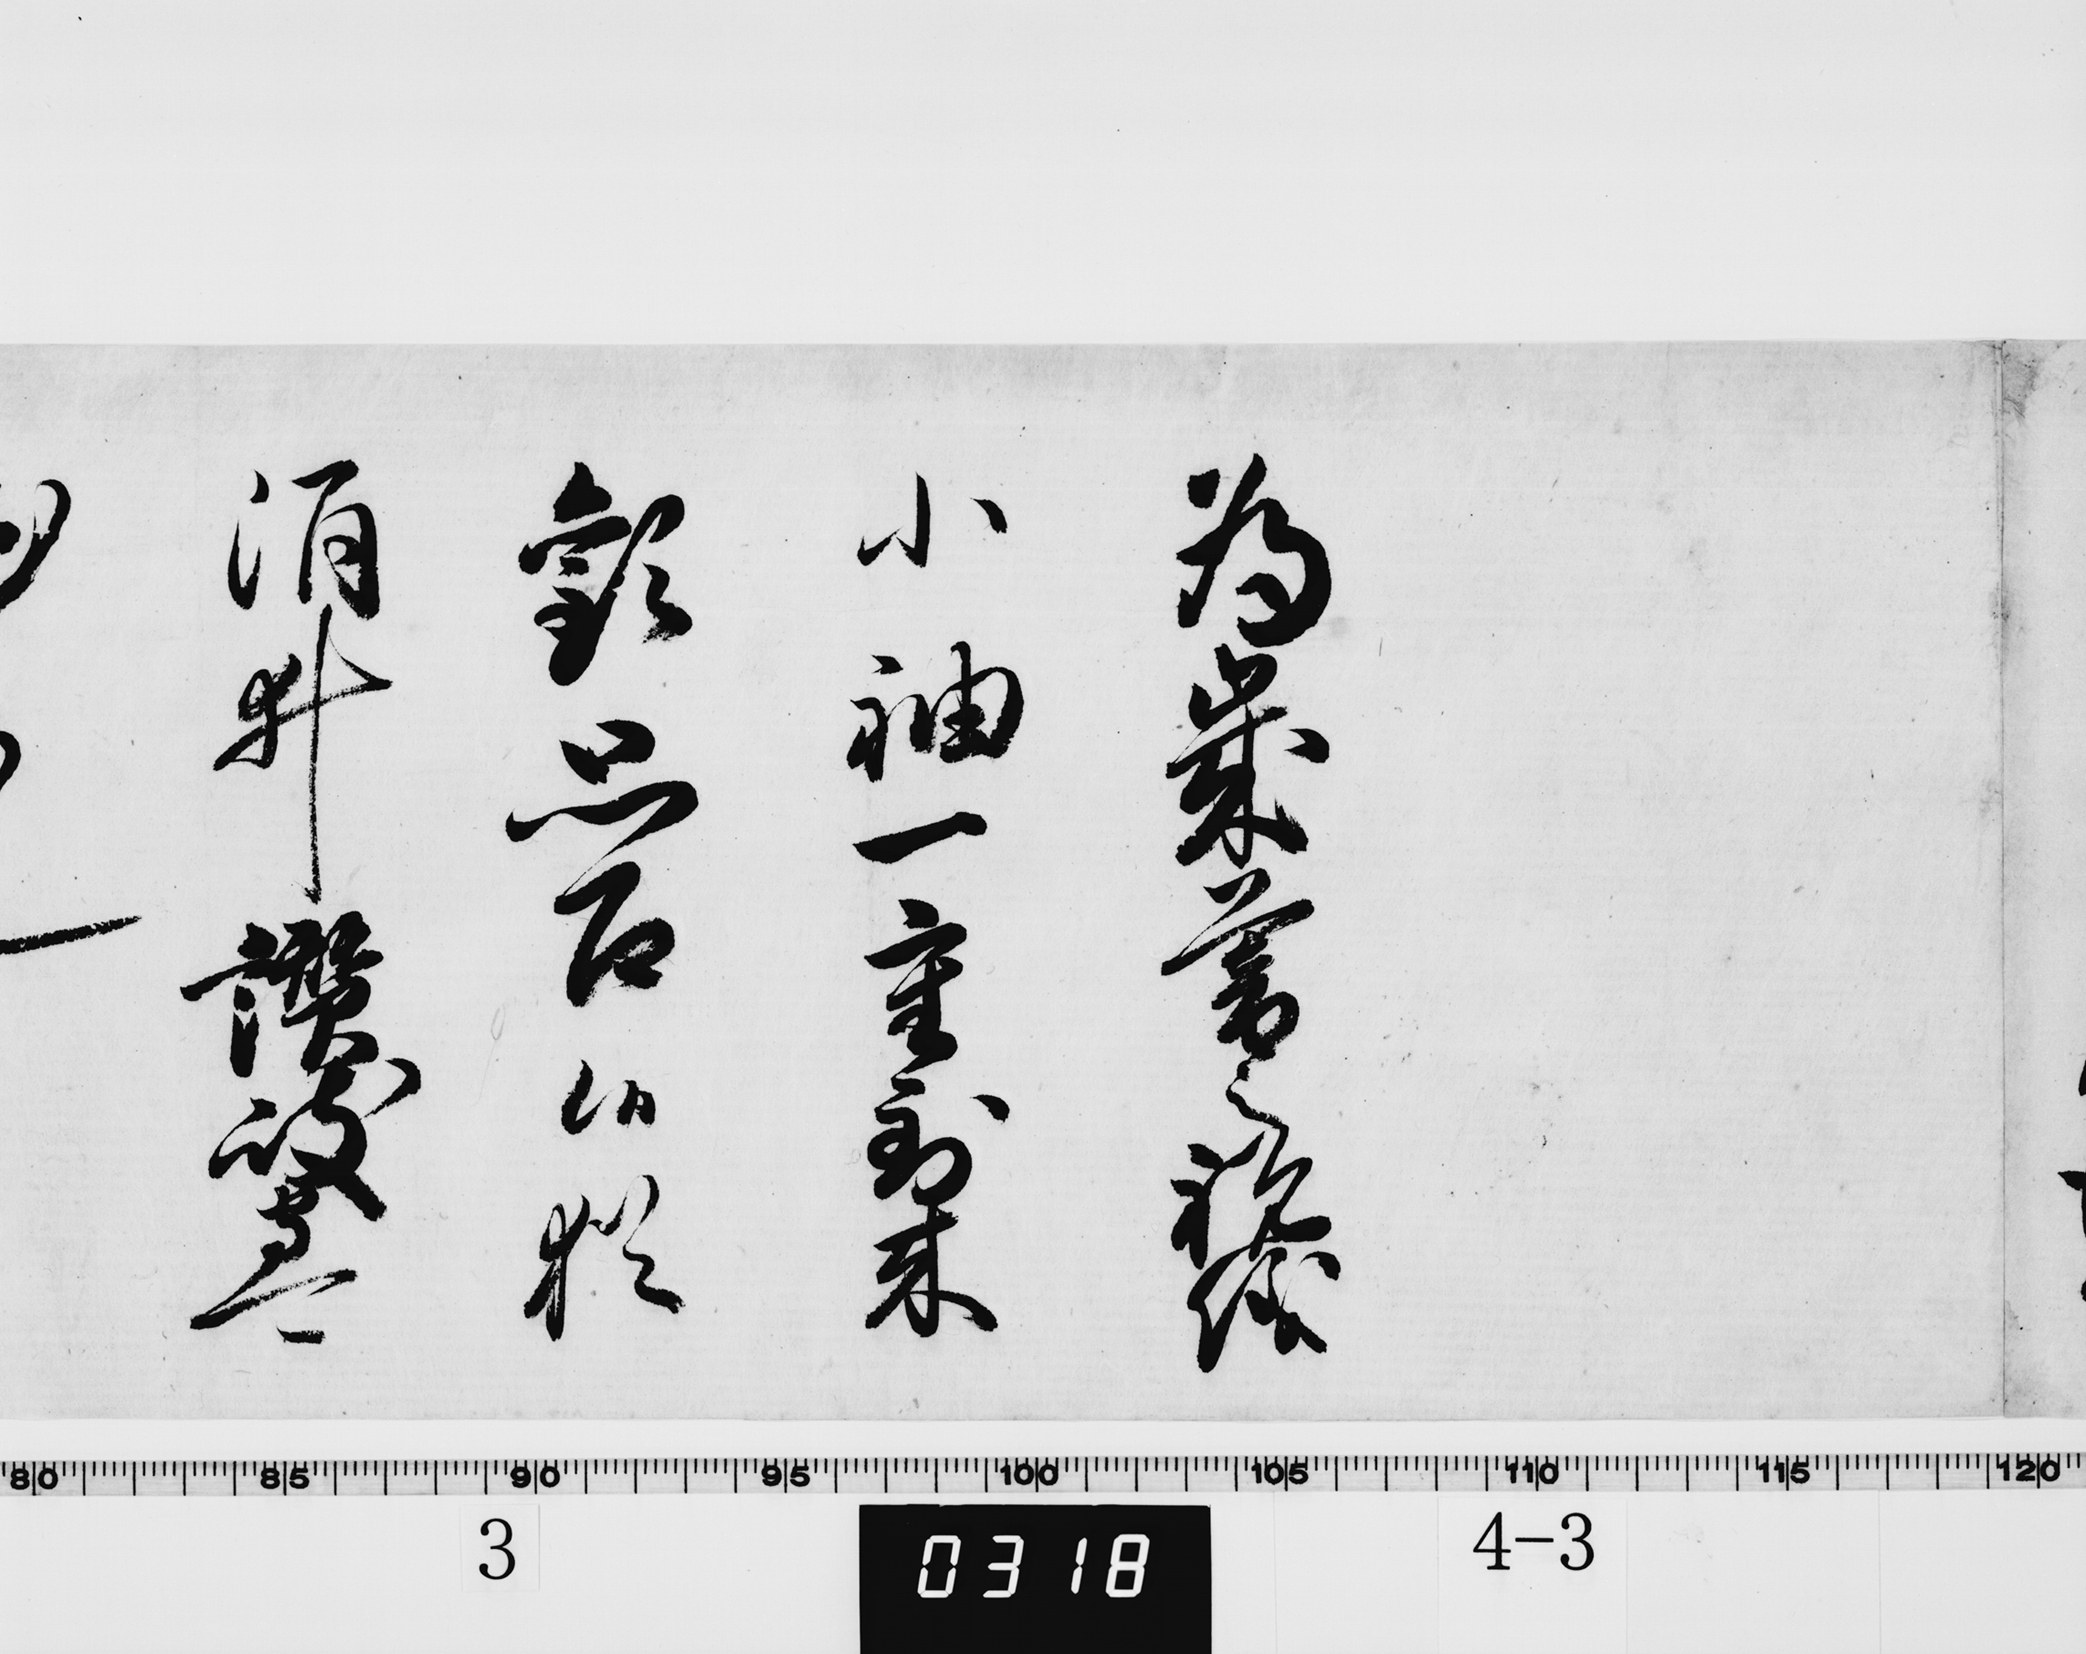 為歳暮之祝儀
小袖一重到来
歓思召候猶
酒井讃岐守
80 85 90 95 100 105 110 115 120
3 0318 4-3